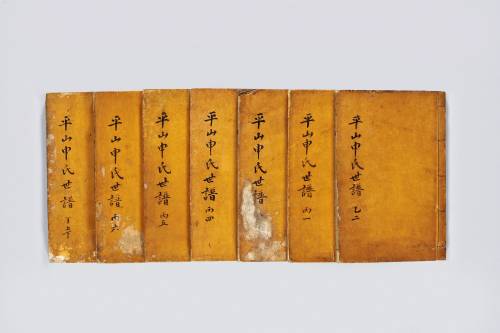 平山申氏世譜 乙二
平山申氏世譜 丙一
平山申氏世譜
平山申氏世譜 丙四
平山申氏世譜 丙五
平山申氏世譜 丙六
平山申氏世譜